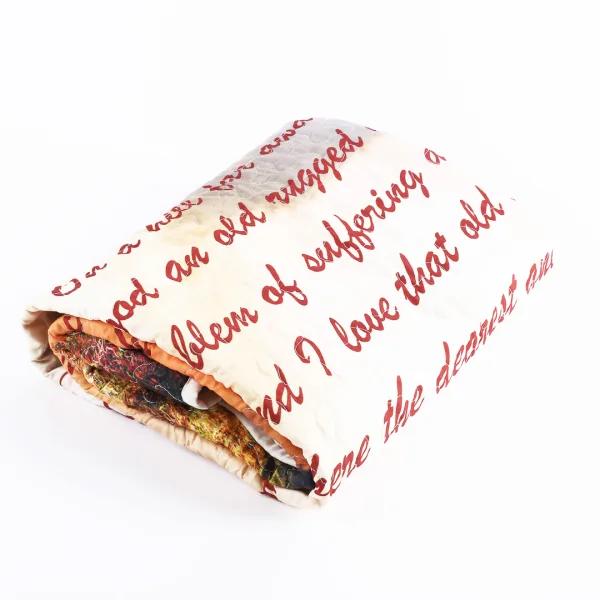 On a hill far awa
ood an old rugged
blem of suffering a
nd I love that old
here the dearest an